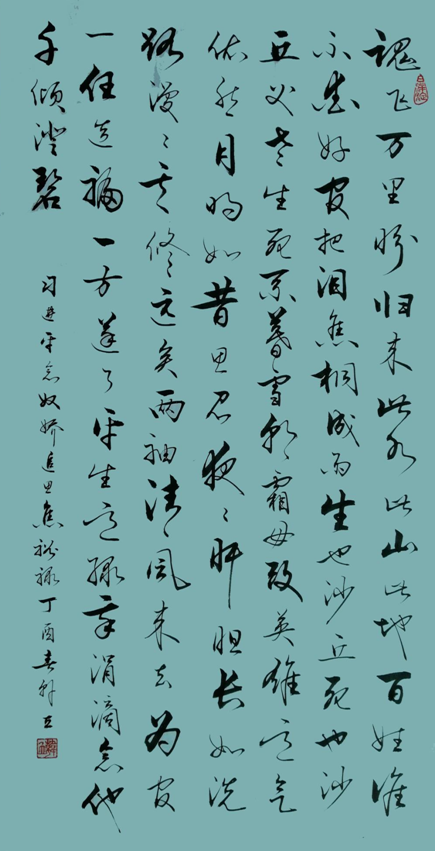 魂飞万里盼归来此水此山此地百姓谁
不爱好官把泪焦桐成雨生也沙丘死也沙
丘父老生死系暮雪朝霜毋改英雄意气
依然月明如昔思君夜〻肝胆长如洗
路漫〻其修远矣两袖清风来去为官
一任造福一方遂了平生意绿我涓滴会他
千顷澄碧
习近平念奴娇追思焦裕禄丁酉春